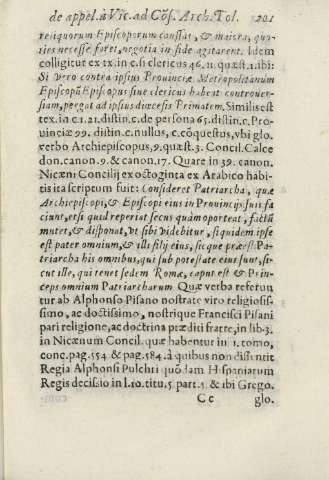 de appel. à Vic. ad Cõs. Arch. Tol. 201
reliquorum Episcoporum caussas, & maiora, quo-
ties necesse foret, negotia in side agitarent. Idem
colligitur ex tx in c. si clericus 46. 11. quæst. 1. ibi:
Si vero contra ipsius Prouinciæ Metropolitanum
Episcopũ Episcopus siue clericus habent controuer-
siam, pergat ad ipsius diœcesis Primatem. Similis est
tex. in c. 1. 21. distin. c. de persona 65. distin. c. Pro-
uinciæ 99. distin. c. nullus, c. cõquestus, vbi glo.
verbo Archiepiscopus, 9. quæst. 3. Concil. Calce
don. canon. 9. & canon. 17. Quare in 39. canon.
Nicæni Concilij ex octoginta ex Arabico habi-
tis ita scriptum fuit: Consideret Patriarcha, quæ
Archiepiscopi, & Episcopi eius in Prouincijs suis fa
ciunt, etsi quid reperiat secus quàm oporteat, factũ
mutet, & disponat, vt sibi videbitur, siquidem ipse
est pater omnium, & illi filij eius, sicque præest Pa-
triarcha his omnibus, qui sub potestate eius sunt, si-
cut ille, qui tenet sedem Romæ, caput est & Prin-
ceps omnium Patriarcharum Quæ verba referun
tur ab Alphonso Pisano nostrate viro religiosis-
simo, ac doctissimo, nostrique Francisci Pisani
pari religione, ac doctrina præditi fratre, in lib. 3.
in Nicænum Concil. quæ habentur in 1. tomo,
conc. pag. 554 & pag. 584. à quibus non dissentit
Regia Alphonsi Pulchri quõdam Hispaniarum
Regis decissio in l. 10. titu. 5. part. 1. & ibi Grego.
Cc glo.